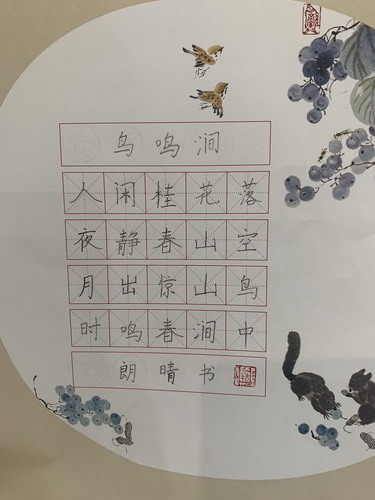 鸟鸣涧
人闲桂花落
夜静春山空
月出惊山鸟
时鸣春涧中
朗晴书